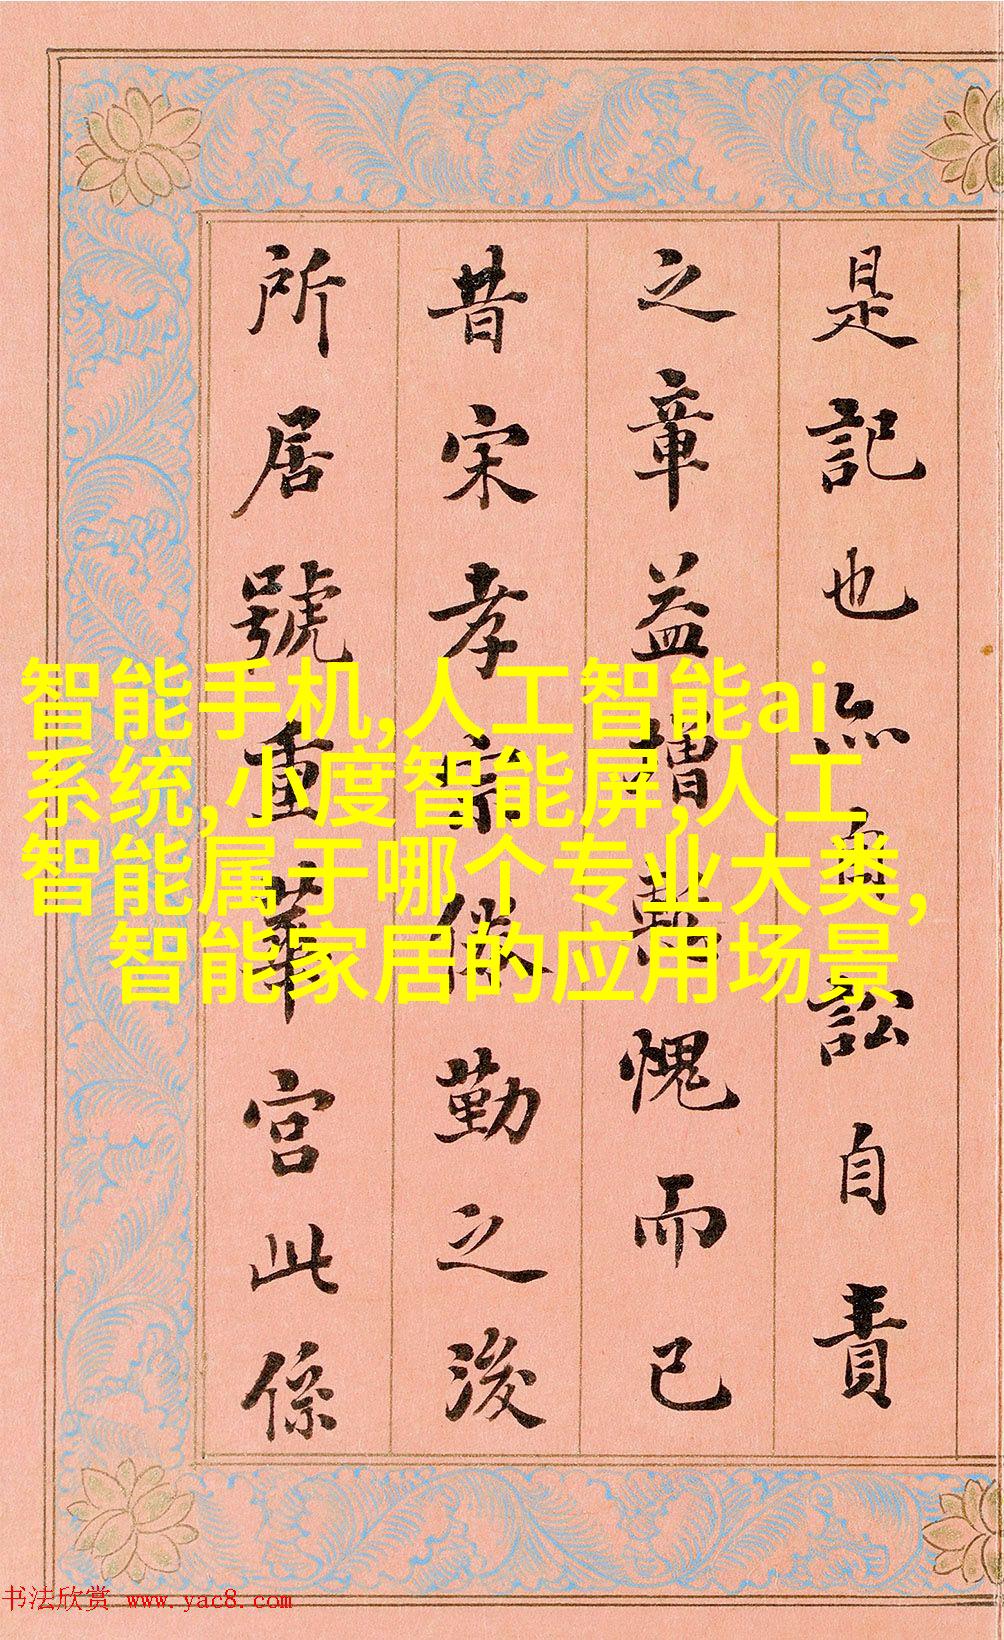 是記也訟自責
之章益增慙愧而已
昔宋孝宗倦勤之後
所居號重華宮此係
智能手机,人工智能ai
系统,小度智能屏,人工
智能属于哪个专业大类,
智能家居的应用场景
书法欣赏 www.yac8.com